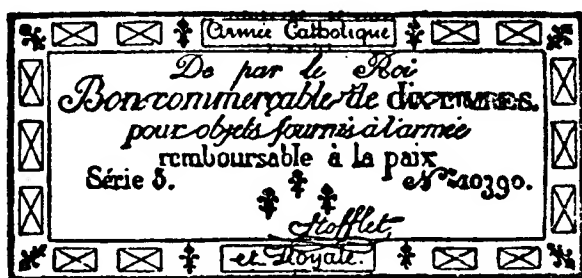 Armée Catholique
De par le Roi
Bon commerçable de dix LIVRES.
pour objets fournis à l'armée
remboursable à la paix
Série 5. Nº 10390.
Stofflet,
et Royale.